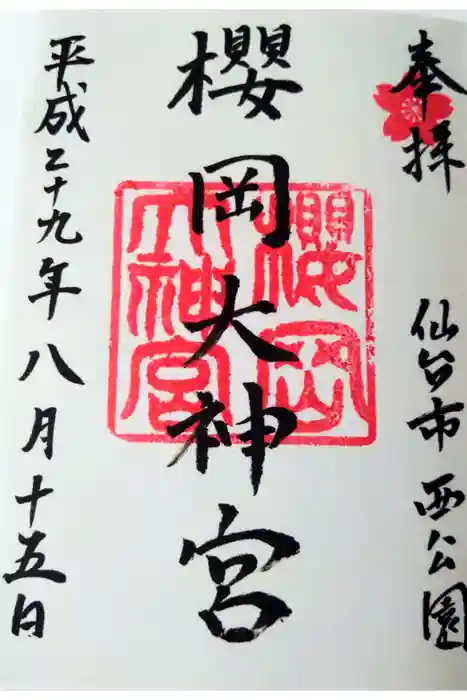 奉拝
仙台市西公園
櫻岡大神宮
櫻岡
大神宮
平成二十九年八月十五日